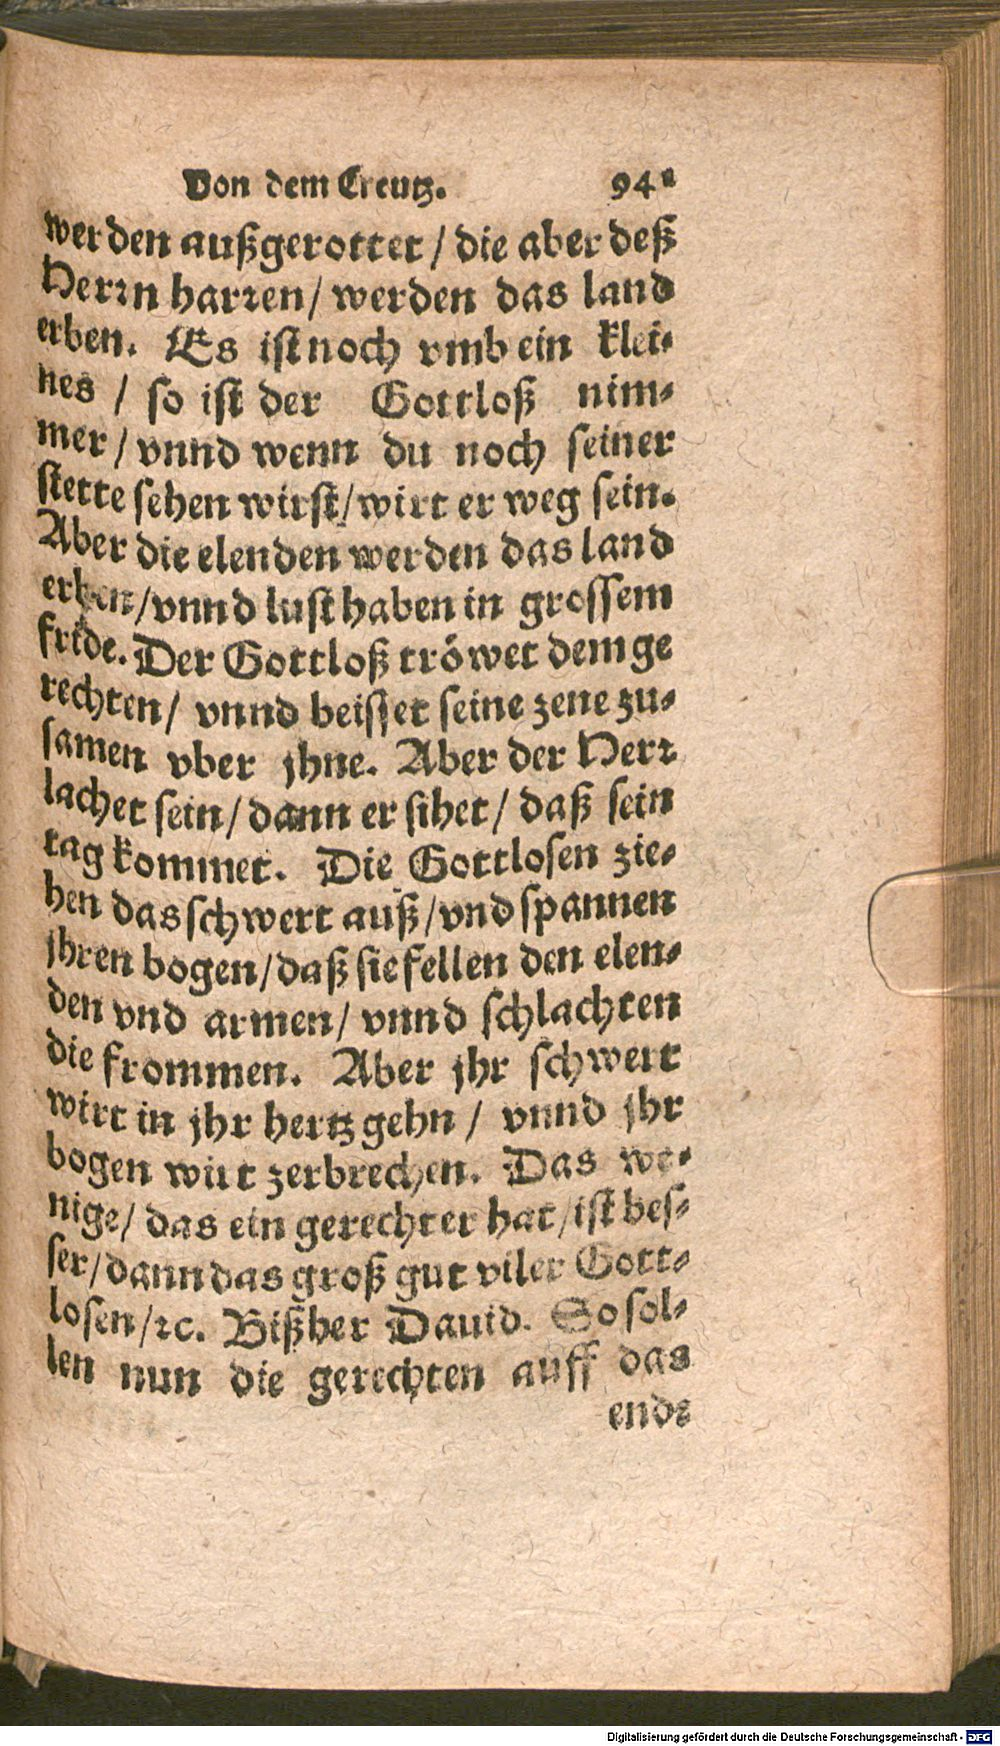 Von dem Creutz. 94
werden außgerottet / die aber deß
Herrn harren / werden das land
erben. Es ist noch vmb ein klei-
nes / so ist der Gottloß nim-
mer / vnnd wenn du noch seiner
stette sehen wirst / wirt er weg sein.
Aber die elenden werden das land
erben / vnnd lust haben in grossem
fride. Der Gottloß tröwet dem ge
rechten / vnnd beisset seine zene zu-
samen vber jhne. Aber der Herr
lachet sein / dann er sihet / daß sein
tag kommet. Die Gottlosen zie-
hen das schwert auß / vnd spannen
jhren bogen / daß sie fellen den elen-
den vnd armen / vnnd schlachten
die frommen. Aber jhr schwert
wirt in jhr hertz gehn / vnnd jhr
bogen wirt zerbrechen. Das we-
nige / das ein gerechter hat / ist bes-
ser / dann das groß gut viler Gott-
losen / ꝛc. Bißher Dauid. So sol-
len nun die gerechten auff das
end-
Digitalisierung gefördert durch die Deutsche Forschungsgemeinschaft - DFG